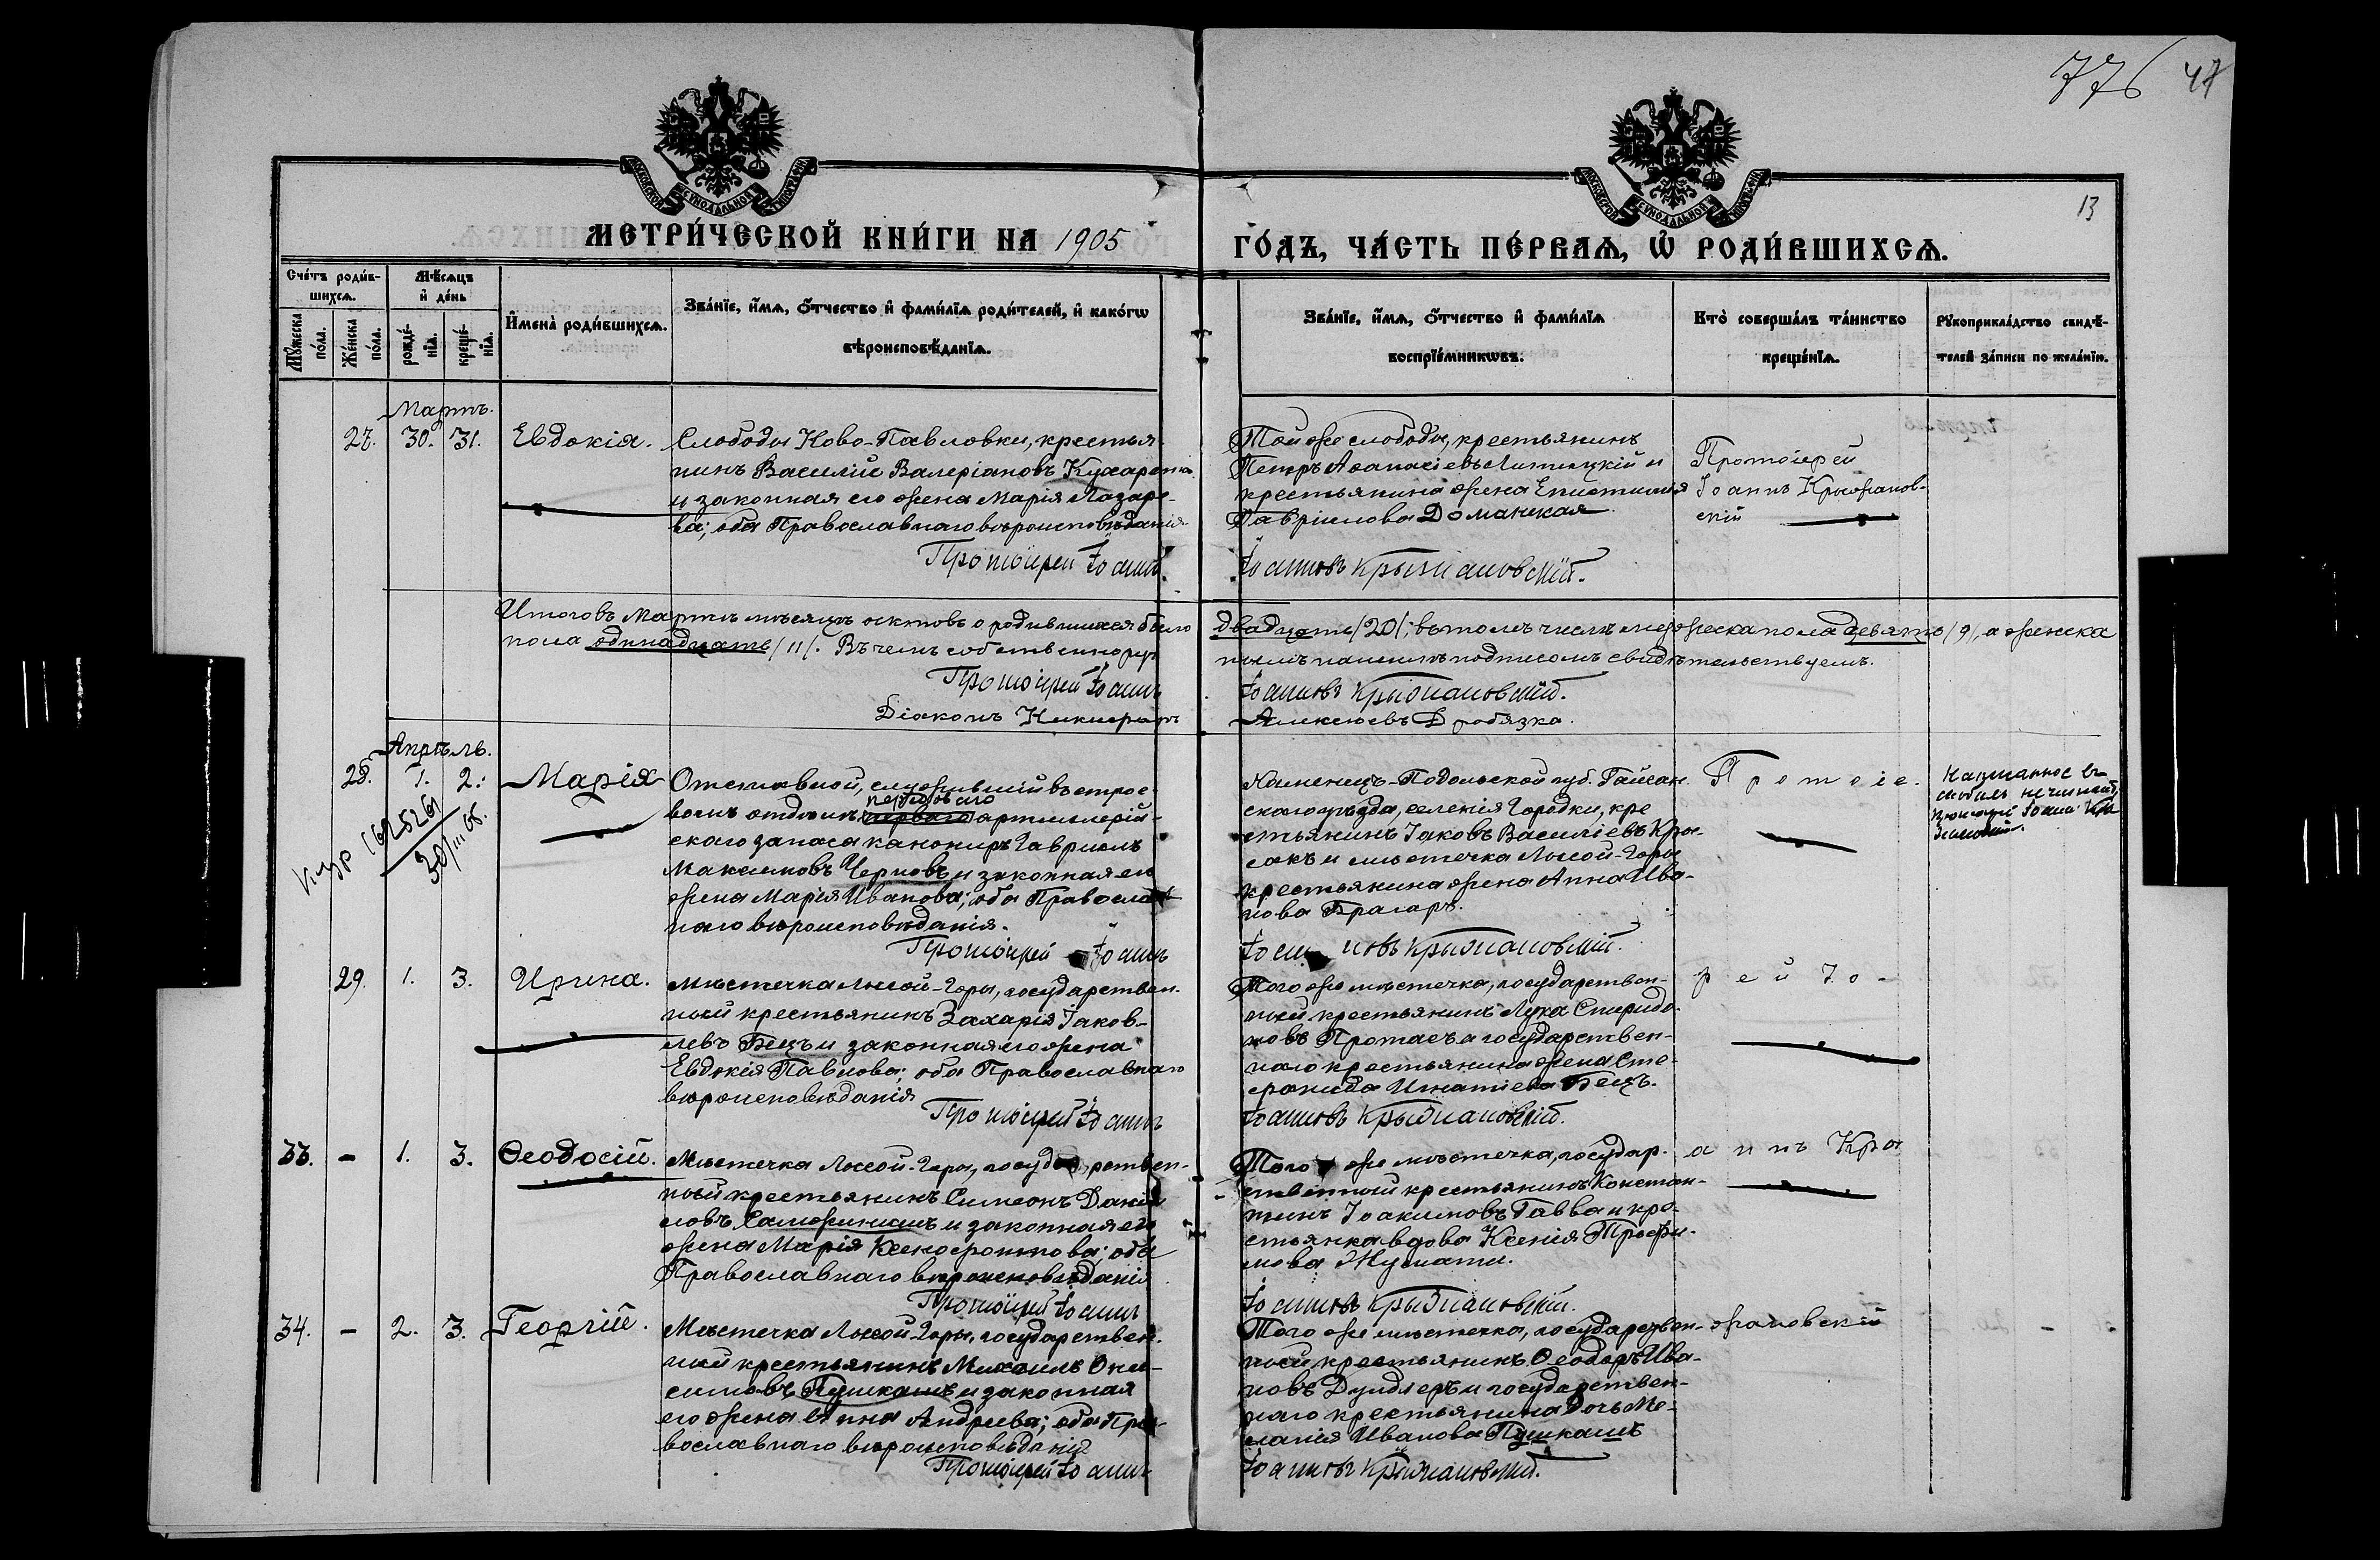 776 47
13
МОСКОВСКОЙ СѴНОДАЛЬНОЙ ТИПОГРАФІИ
МОСКОВСКОЙ СѴНОДАЛЬНОЙ ТИПОГРАФІИ
МЕТРИ́ЧЕСКОЙ КНИ́ГИ НА 1905
ГО́ДЪ, ЧА́СТЬ ПЕ́РВАѦ, Ѡ҆ РОДИ́ВШИХСѦ.
Сче́тъ роди́в-
шихсѧ.
Мꙋ́жеска по́ла.
Же́нска по́ла.
Мѣ́сѧцъ
и҆ де́нь
рожде́-
нїѧ.
креще́-
нїѧ.
И҆мена̀ роди́вшихсѧ.
Зва́нїе, и҆́мѧ, ѻ҆́тчество и҆ фами́лїѧ роди́телей, и҆ како́гѡ
вѣроисповѣ́данїѧ.
Зва́нїе, и҆́мѧ, ѻ҆́тчество и҆ фами́лїѧ
воспрїе́мникѡвъ.
Кто̀ соверша́лъ та́инство
креще́нїѧ.
Рꙋкоприкла́дство свидѣ́-
телей за́писи по жела́нїю.
Мартъ.
27. 30. 31. Евдокія.
Слободы Ново-Павловки, крестья-
нинъ Василій Валеріановъ
и законная его жена Марія Лазаре-
ва; оба Православнаго вѣроисповѣданія
Протоіерей Іоаннъ
Той же слободы, крестьянинъ
Петръ Аѳанасіевъ и
крестьянина жена Епистимія
Гавріилова Доманская
Іоанновъ Крыжановскій.
Протоіерей
Іоаннъ Крыжанов-
скій
Итого въ Мартѣ мѣсяцѣ актовъ о родившихся было
двадцать /20/; въ томъ числѣ мужеска пола девять /9/, а женска
пола одиннадцать /11/. Въ чемъ собственнору
нымъ нашимъ подписомъ свидѣтельствуемъ.
Протоіерей Іоаннъ
Іоанновъ Крыжановскій.
Діаконъ Никифоръ
Алексѣевъ Дробязка.
Апрѣль.
28. 1. 2. Марія
625261
30/III 05.
Отставной, служившій въ строе-
вомъ отдѣлѣ перваго артиллерій-
скаго запаса канониръ Гавріилъ
Максимовъ Черновъ и законная его
жена Марія Иванова; оба Православ
наго вѣроисповѣданія.
Протоіерей Іоаннъ
Каменецъ-Подольской губ. Гайсин
скаго уѣзда, селенія Городки, кре
стьянинъ Іаковъ Василіевъ
и мѣстечка Лысой-Горы
крестьянина жена Анна Ива-
нова Брагарь.
Іоанновъ Крыжановскій.
Протоіе-
Написанное въ
29. 1. 3. Ирина.
Мѣстечка Лысой-Горы, государствен-
ный крестьянинъ Захарія Іаков-
левъ Бецъ и законная его жена
Евдокія Павлова; оба Православнаго
вѣроисповѣданія
Протоіерей Іоаннъ
Того же мѣстечка, государствен-
ный крестьянинъ Лука Спиридо-
новъ и государствен-
наго крестьянина жена Сте-
фанида Игнатіева Бецъ.
Іоанновъ Крыжановскій.
рей Іо-
33. – 1. 3. Ѳеодосій.
Мѣстечка Лысой-Горы, государствен-
ный крестьянинъ Симеонъ Дані
ловъ и законная его
жена Марія Ксенофонтова; оба
Православнаго вѣроисповѣданія
Протоіерей Іоаннъ
Того же мѣстечка, государ-
ственный крестьянинъ Констан-
тинъ Іоакимовъ Гавва и кре-
стьянка вдова Ксенія Трофи-
мова
Іоанновъ Крыжановскій.
аннъ Кры
34. – 2. 3. Георгій.
Мѣстечка Лысой-Горы, государствен-
ный крестьянинъ Михаилъ Они-
симовъ Пушкашъ и законная
его жена Анна Андреева; оба Пра-
вославнаго вѣроисповѣданія
Протоіерей Іоаннъ
Того же мѣстечка, государствен-
ный крестьянинъ Ѳеодоръ Ива-
новъ и государствен-
наго крестьянина дочь Ме-
ланія Иванова Пушкашъ
Іоанновъ Крыжановскій.
жановскій